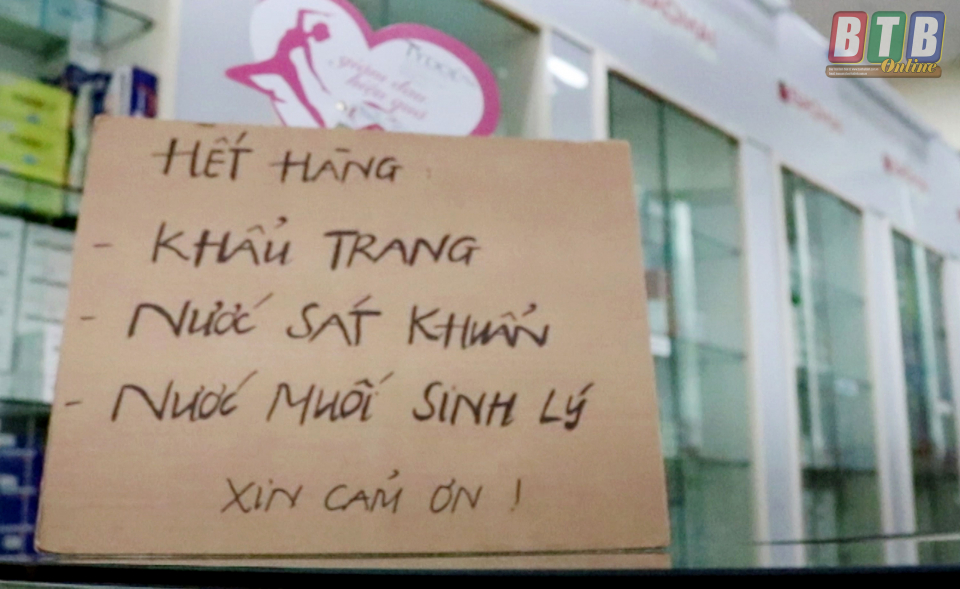 BTB
Online
HẾT HÀNG:
- KHẨU TRANG
- NƯỚC SÁT KHUẨN
- NƯỚC MUỐI SINH LÝ
XIN CẢM ƠN !